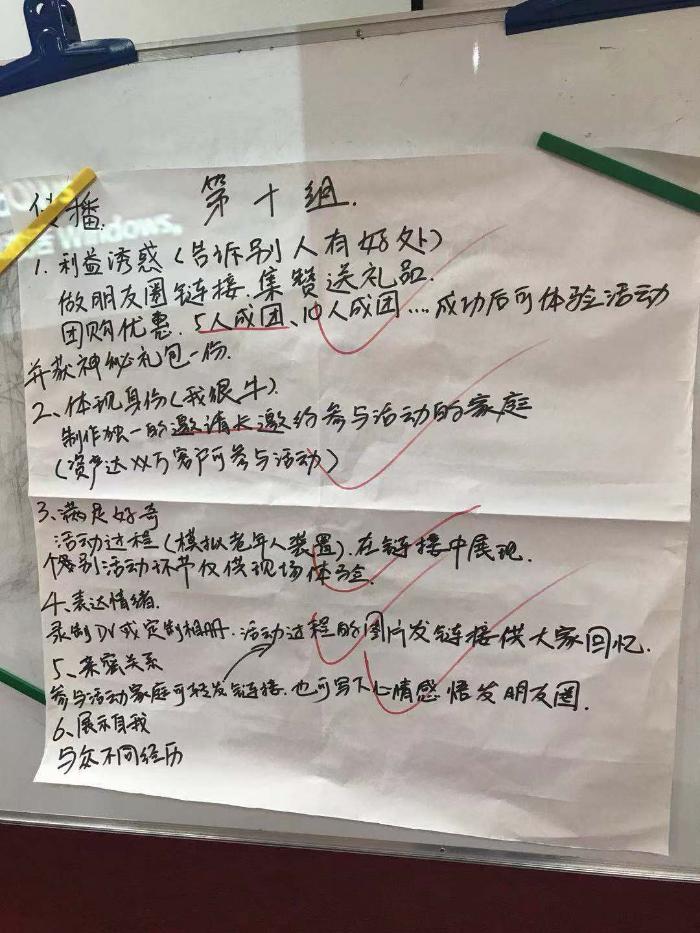 传播. 第十组.
1. 利益诱惑(告诉别人有好处)
做朋友圈链接.集赞送礼品.
团购优惠.5人成团、10人成团....成功后可体验活动
并获神秘礼包一份.
2、体现身份(我很牛).
制作独一的邀请长邀约参与活动的家庭
(资产达XX万客户可参与活动)
3、满足好奇
活动过程(模拟老年人装置).在链接中展现.
个别活动环节仅供现场体验.
4、表达情绪.
录制DV或定制相册.活动过程的图片发链接供大家回忆.
5、亲密关系
参与活动家庭可转发链接.也可写下心情感悟发朋友圈.
6、展示自我
与众不同经历
Windows,